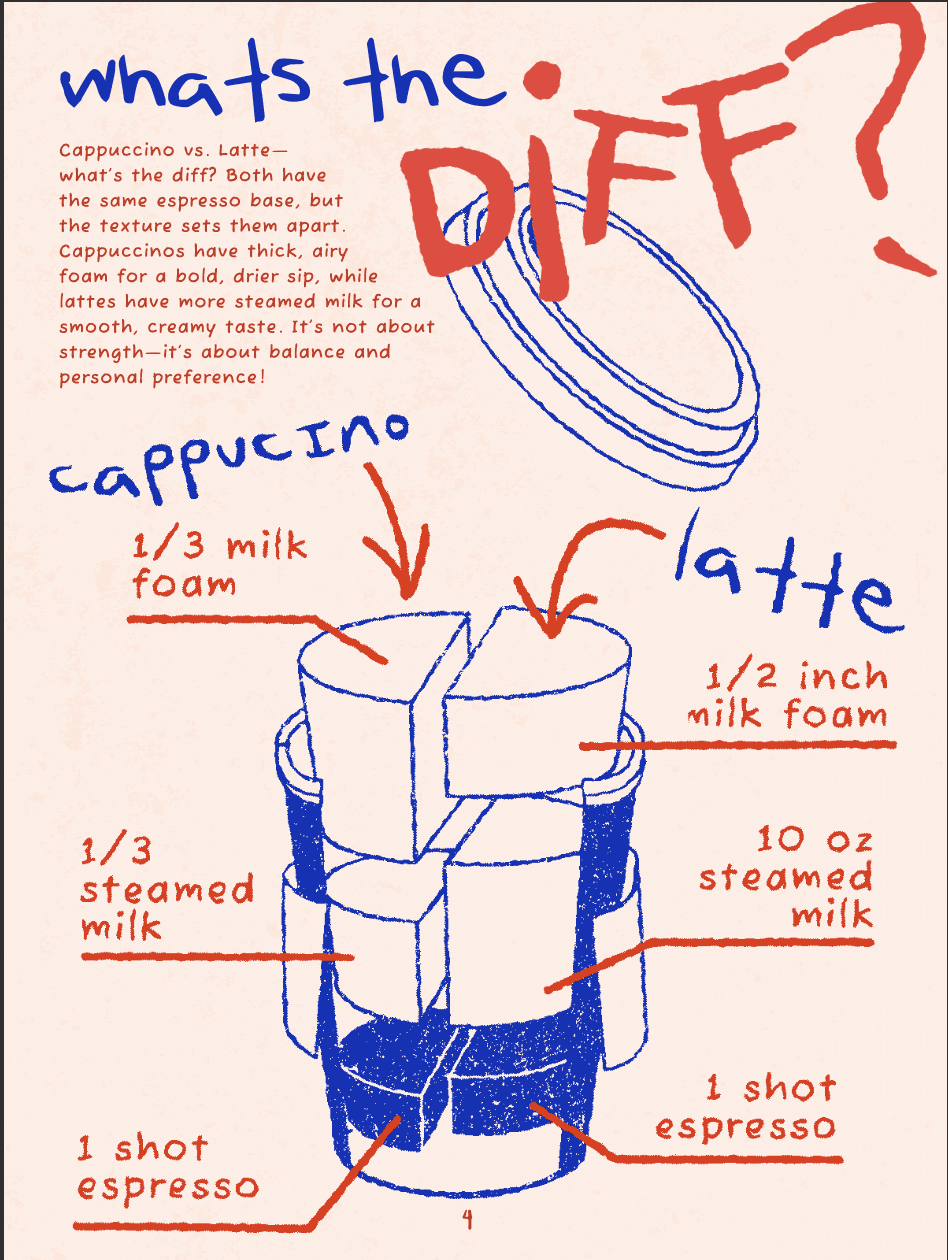 whats the DIFF?
Cappuccino vs. Latte—
what's the diff? Both have
the same espresso base, but
the texture sets them apart.
Cappuccinos have thick, airy
foam for a bold, drier sip, while
lattes have more steamed milk for a
smooth, creamy taste. It's not about
strength—it's about balance and
personal preference!
cappucIno
1/3 milk
foam
latte
1/2 inch
milk foam
1/3
steamed
milk
10 oz
steamed
milk
1 shot
espresso
1 shot
espresso
4